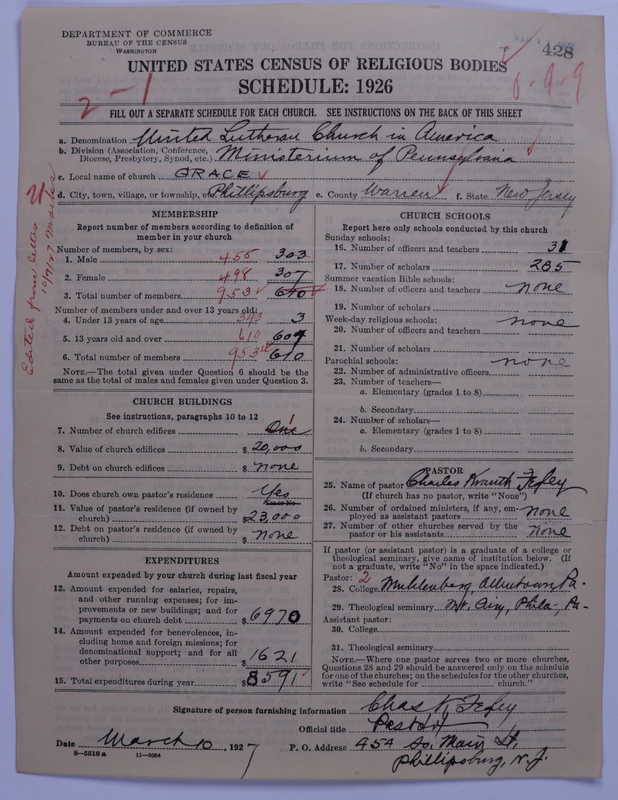 DEPARTMENT OF COMMERCE
BUREAU OF THE CENSUS
WASHINGTON
428
UNITED STATES CENSUS OF RELIGIOUS BODIES
SCHEDULE: 1926
2-1
8-9-9
FILL OUT A SEPARATE SCHEDULE FOR EACH CHURCH. SEE INSTRUCTIONS ON THE BACK OF THIS SHEET
a. Denomination United Lutheran Church in America
b. Division (Association, Conference, Diocese, Presbytery, Synod, etc.) Ministerium of Pennsylvania
c. Local name of church GRACE
d. City, town, village, or township, etc. Phillipsburg e. County Warren f. State New Jersey
Edited from letter 10/7/27
MEMBERSHIP
Report number of members according to definition of
member in your church
Number of members, by sex:
1. Male 455 303
2. Female 498 307
3. Total number of members 953 610
Number of members under and over 13 years old:
4. Under 13 years of age 343 3
5. 13 years old and over 610 607
6. Total number of members 953 610
NOTE.—The total given under Question 6 should be the
same as the total of males and females given under Question 3.
CHURCH BUILDINGS
See instructions, paragraphs 10 to 12
7. Number of church edifices One 1
8. Value of church edifices $ 20,000
9. Debt on church edifices $ None
10. Does church own pastor's residence Yes
11. Value of pastor's residence (if owned by
church) $ 23,000
12. Debt on pastor's residence (if owned by
church) $ None
EXPENDITURES
Amount expended by your church during last fiscal year
13. Amount expended for salaries, repairs,
and other running expenses; for im-
provements or new buildings; and for
payments on church debt $ 6970
14. Amount expended for benevolences, in-
cluding home and foreign missions; for
denominational support; and for all
other purposes $ 1621
15. Total expenditures during year $ 8591
CHURCH SCHOOLS
Report here only schools conducted by this church
Sunday schools:
16. Number of officers and teachers 31
17. Number of scholars 285
Summer vacation Bible schools:
18. Number of officers and teachers None
19. Number of scholars
Week-day religious schools: None
20. Number of officers and teachers
21. Number of scholars
Parochial schools: None
22. Number of administrative officers
23. Number of teachers—
a. Elementary (grades 1 to 8)
b. Secondary
24. Number of scholars—
a. Elementary (grades 1 to 8)
b. Secondary
PASTOR
25. Name of pastor Charles Krauth Fegley
(If church has no pastor, write "None")
26. Number of ordained ministers, if any, em-
ployed as assistant pastors None
27. Number of other churches served by the
pastor or his assistants None
If pastor (or assistant pastor) is a graduate of a college or
theological seminary, give name of institution below. (If
not a graduate, write "No" in the space indicated.)
Pastor: 2
28. College Muhlenberg, Allentown Pa.
29. Theological seminary Mt. Airy, Phila-, Pa-
Assistant pastor:
30. College
31. Theological seminary
NOTE.—Where one pastor serves two or more churches,
Questions 28 and 29 should be answered only on the schedule
for one of the churches; on the schedules for the other churches,
write "See schedule for church."
Signature of person furnishing information Chas K Fegley
Official title Pastor
Date March 10, 1927 P. O. Address 454 So. Main St,
Phillipsburg, N. J.
8-5518 a 11-9084